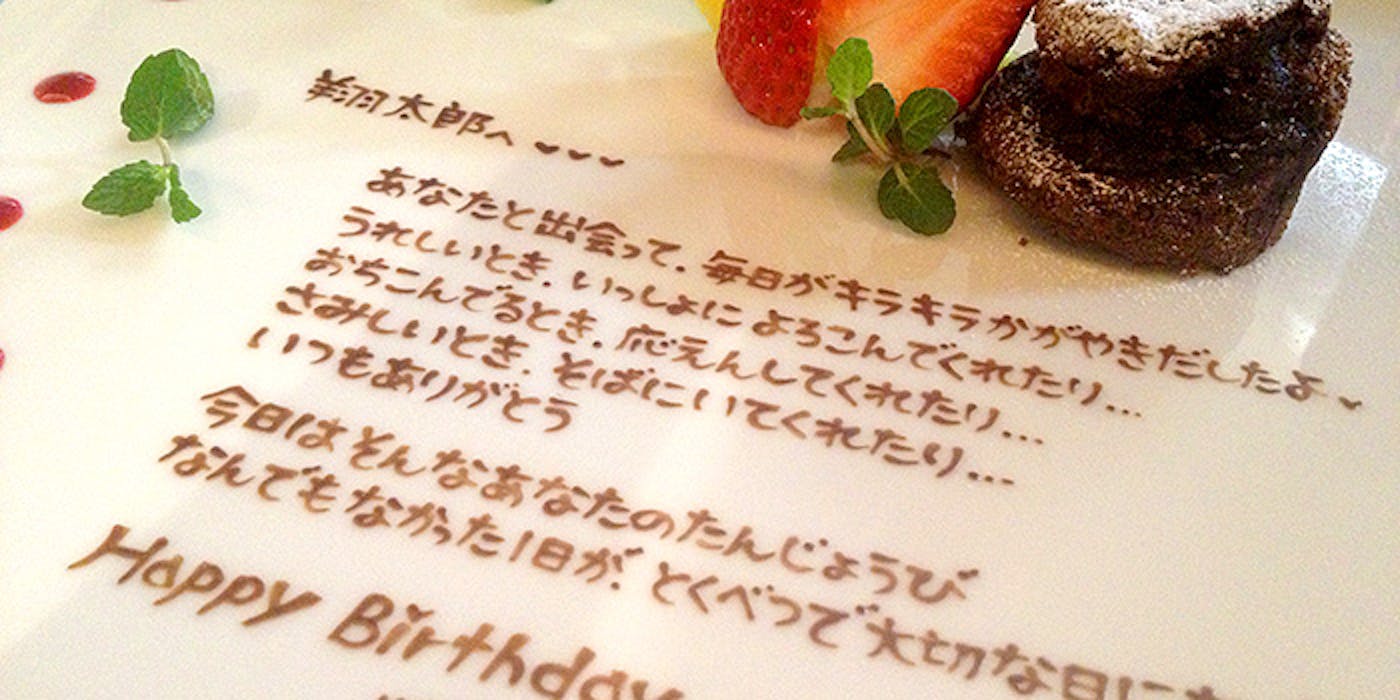 翔太郎へ ♥♥♥
あなたと出会って、毎日がキラキラかがやきだしたよ♥
うれしいとき、いっしょによろこんでくれたり…
おちこんでるとき、応えんしてくれたり…
さみしいとき、そばにいてくれたり…
いつもありがとう
今日はそんなあなたのたんじょうび
なんでもなかった1日が、とくべつで大切な日に
Happy Birthday